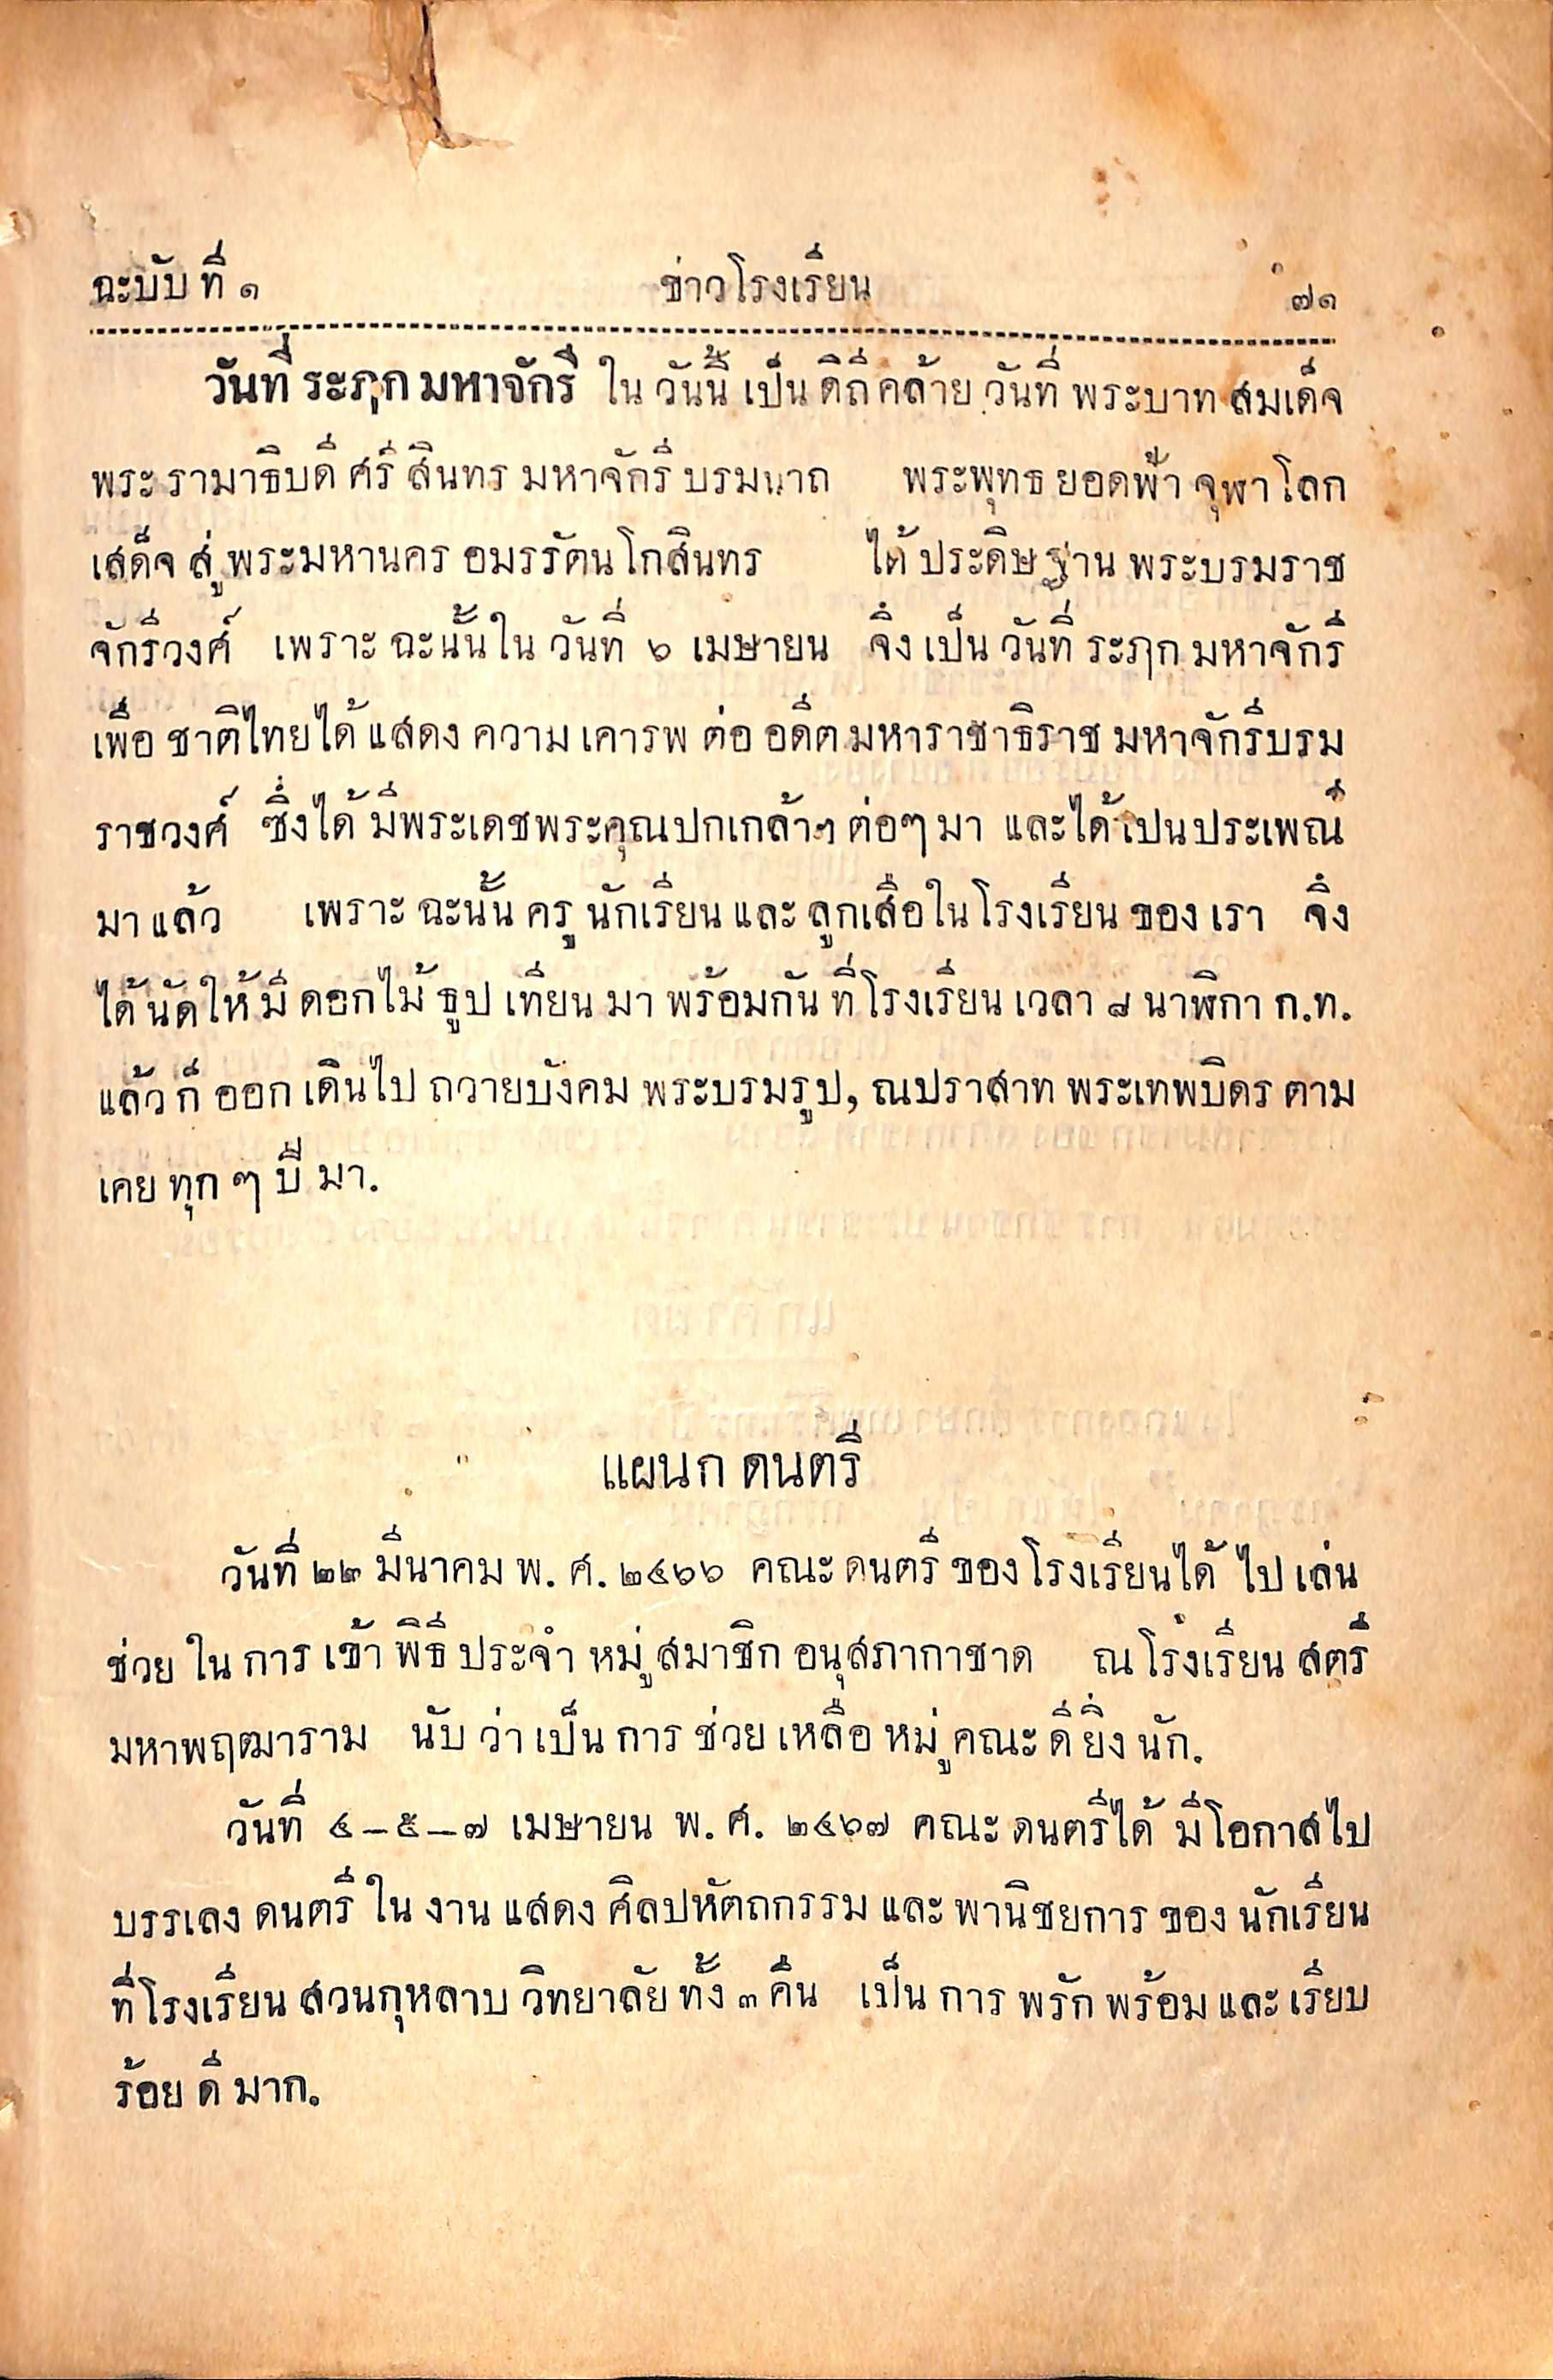 ฉะบับ ที่ ๑ ข่าวโรงเรียน ๗๑
วันที่ ระฦก มหาจักรี ใน วันนี้ เป็น ดิถี คล้าย วันที่ พระบาท สมเด็จ
พระ รามาธิบดี ศรี สินทร มหาจักรี บรมนาถ พระพุทธ ยอดฟ้า จุฬาโลก
เสด็จ สู่ พระมหานคร อมรรัตนโกสินทร ได้ ประดิษฐาน พระบรมราช
จักรีวงศ์ เพราะ ฉะนั้นใน วันที่ ๖ เมษายน จึ่ง เป็น วันที่ ระฦก มหาจักรี
เพื่อ ชาติไทยได้ แสดง ความ เคารพ ต่อ อดีต มหาราชาธิราช มหาจักรีบรม
ราชวงศ์ ซึ่งได้ มีพระเดชพระคุณปกเกล้าฯ ต่อๆ มา และได้เปนประเพณี
มา แล้ว เพราะ ฉะนั้น ครู นักเรียน และ ลูกเสือในโรงเรียน ของ เรา จึ่ง
ได้ นัด ให้ มี ดอกไม้ ธูป เทียน มา พร้อมกัน ที่โรงเรียน เวลา ๘ นาฬิกา ก.ท.
แล้ว ก็ ออก เดินไป ถวายบังคม พระบรมรูป, ณปราสาท พระเทพบิดร ตาม
เคย ทุก ๆ ปี มา.
แผนก ดนตรี
วันที่ ๒๒ มีนาคม พ. ศ. ๒๔๖๖ คณะ ดนตรี ของ โรงเรียนได้ ไป เล่น
ช่วย ใน การ เข้า พิธี ประจำ หมู่ สมาชิก อนุสภากาชาด ณ โรงเรียน สตรี
มหาพฤฒาราม นับ ว่า เป็น การ ช่วย เหลือ หมู่ คณะ ดี ยิ่ง นัก.
วันที่ ๔–๕–๗ เมษายน พ. ศ. ๒๔๖๗ คณะ ดนตรีได้ มีโอกาสไป
บรรเลง ดนตรี ใน งาน แสดง ศิลปหัตถกรรม และ พานิชยการ ของ นักเรียน
ที่โรงเรียน สวนกุหลาบ วิทยาลัย ทั้ง ๓ คืน เป็น การ พรัก พร้อม และ เรียบ
ร้อย ดี มาก.